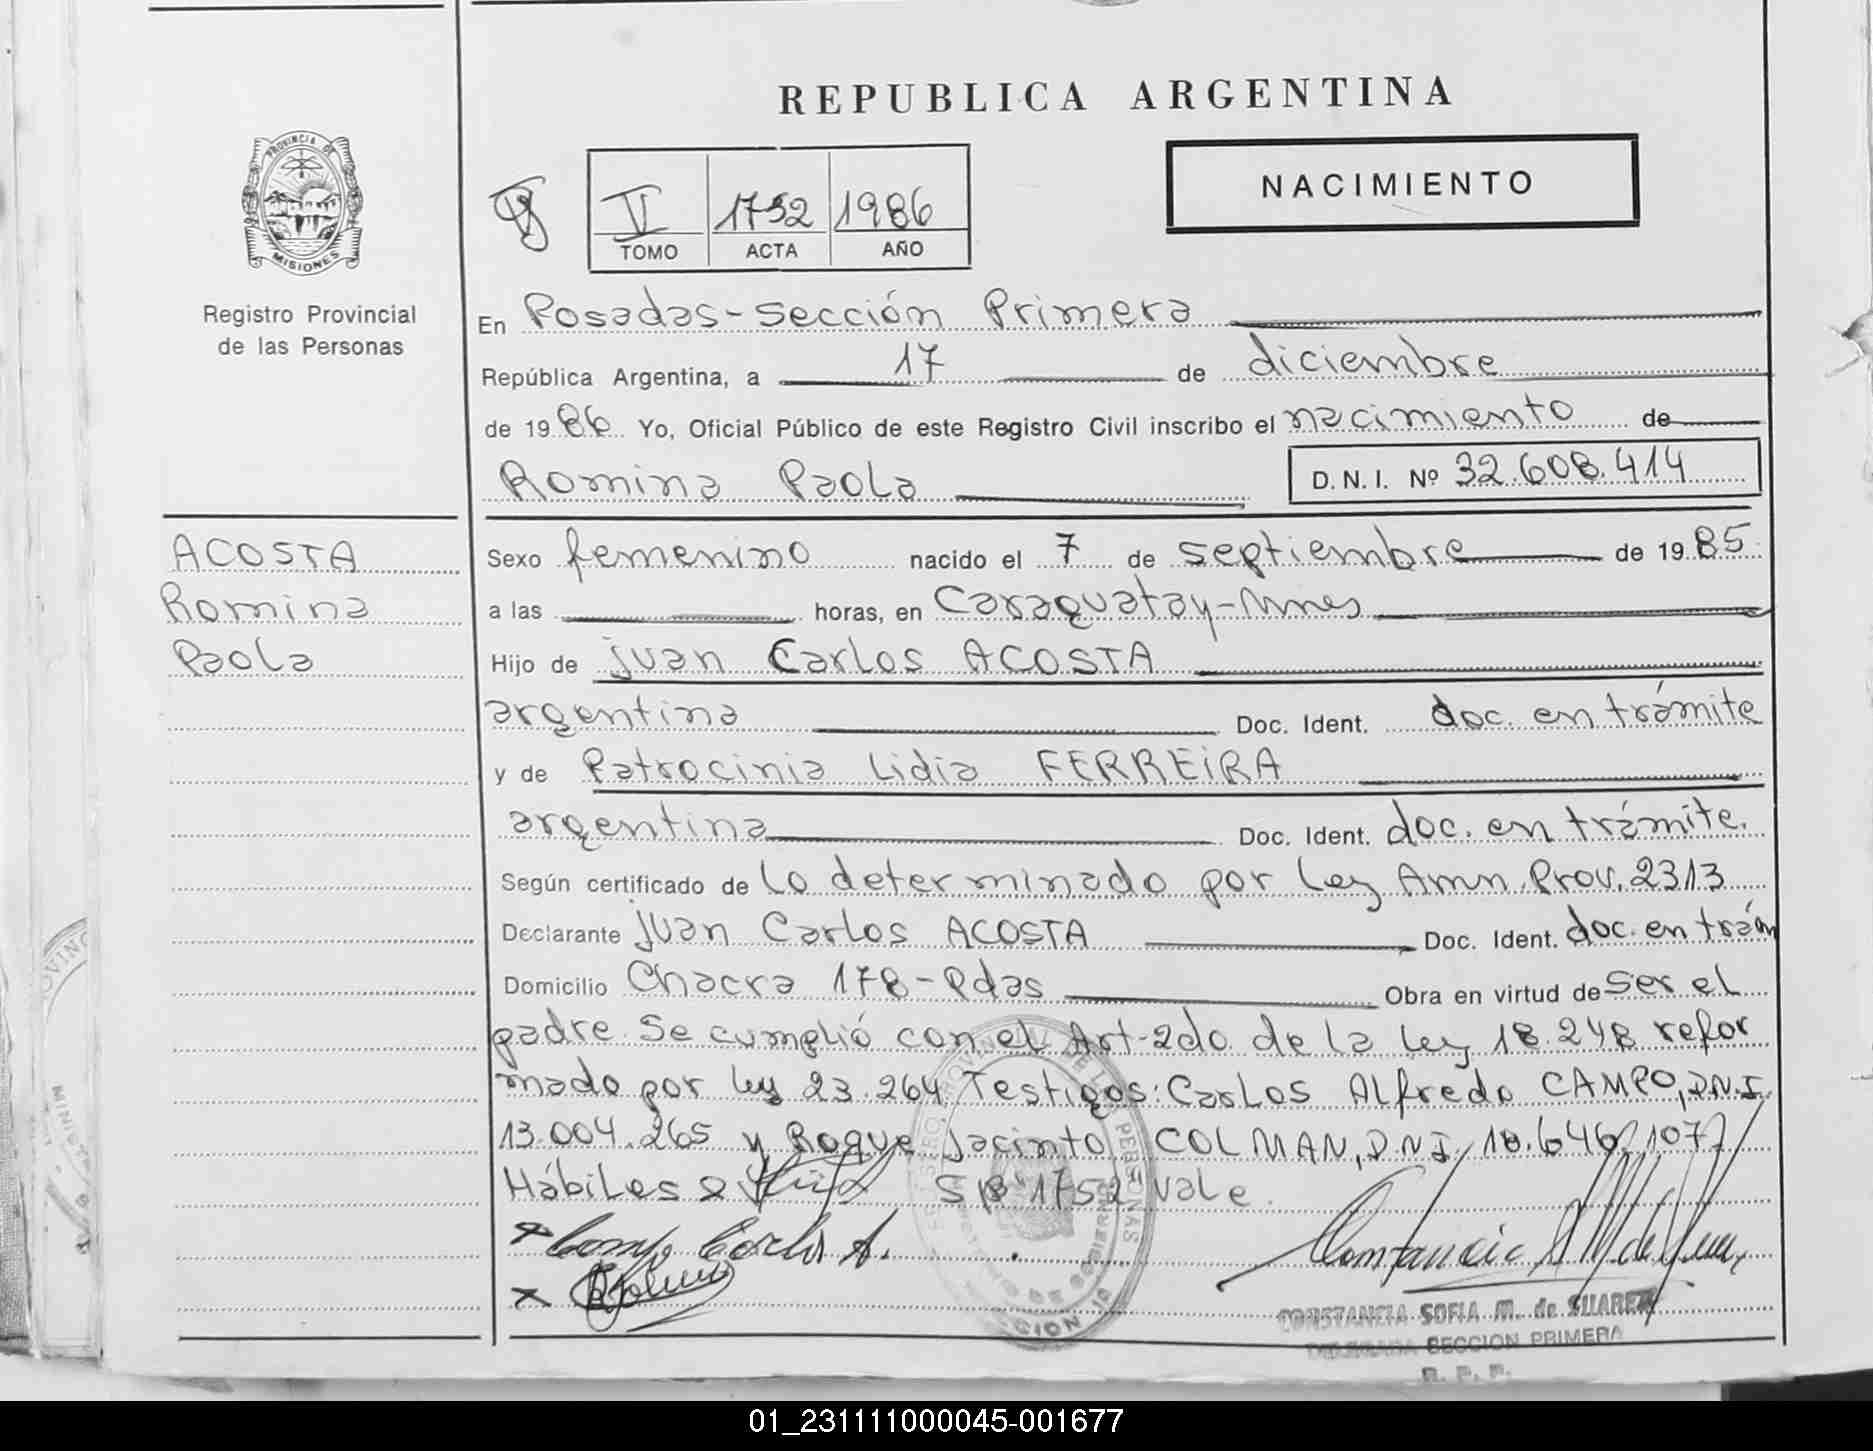 REPUBLICA ARGENTINA
PROVINCIA DE
MISIONES
Registro Provincial
de las Personas
V 1752 1986
TOMO ACTA AÑO
NACIMIENTO
En Posadas-Sección Primera
República Argentina, a 17 de diciembre
de 1986 Yo, Oficial Público de este Registro Civil inscribo el nacimiento de
Romina Paola D.N.I. Nº 32.608.414
ACOSTA
Romina
Paola
Sexo femenino nacido el 7 de septiembre de 1985
a las horas, en Caraguatay-Mnes
Hijo de Juan Carlos ACOSTA
argentina Doc. Ident. doc. en trámite
y de Patrocinia Lidia FERREIRA
argentina Doc. Ident. doc. en trámite.
Según certificado de lo determinado por Ley Amn. Prov. 2313
Declarante Juan Carlos ACOSTA Doc. Ident. doc. en trám
Domicilio Chacra 178-Pdas Obra en virtud de ser el
padre. Se cumplió con el Art-2do de la Ley 18.248 refor
mado por ley 23.264 Testigos: Carlos Alfredo CAMPO, D.N.I.
13.004.265 y Roque Jacinto COLMAN, D.N.I. 18.646.107
Hábiles S/B "1752" vale.
x Campo Carlos A.
x
CONSTANCIA SOFIA M. de SUAREZ
DELEGADA SECCION PRIMERA
R. P. P.
01_231111000045-001677